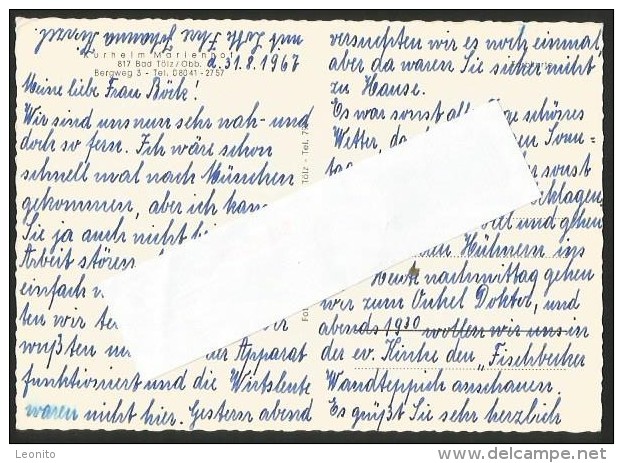 mit Lotte Ihre Johanna
Kurheim Marienhof
817 Bad Tölz/Obb.
Bergweg 3 - Tel. 08041-2757
d. 31.8.1967
Meine liebe Frau Börke!
Wir sind uns nun sehr nah - und
doch so fern. Ich wäre schon
schnell mal nach München
gekommen, aber ich kann
Sie ja auch nicht bei
Arbeit stören.
einfach
ten wir te
wußten der Apparat
funktioniert und die Wirtsleute
waren nicht hier. Gestern abend
Tölz - Tel.
Fot
versuchten wir es noch einmal,
aber da waren Sie sicher nicht
zu Hause.
Es war sonst alle Tage schönes
Wetter, da en Sonn-
tag sonst
schlagen,
und gehen
Hühnern ins
Heute nachmittag gehen
wir zum Onkel Doktor, und
abends 19³⁰ wollen wir uns in
der ev. Kirche den "Fischbecker
Wandteppich anschauen.
Es grüßt Sie sehr herzlich
Leonito
www.delcampe.net